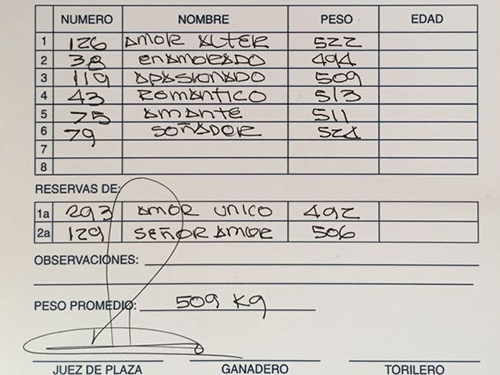 NUMERO NOMBRE PESO EDAD
1 126 AMOR ALTER 522
2 38 ENAMORADO 494
3 119 APASIONADO 509
4 43 ROMANTICO 513
5 75 AMANTE 511
6 79 SOÑADOR 524
7
8
RESERVAS DE:
1a 293 AMOR UNICO 492
2a 129 SEÑOR AMOR 506
OBSERVACIONES:
PESO PROMEDIO: 509 Kg
JUEZ DE PLAZA GANADERO TORILERO